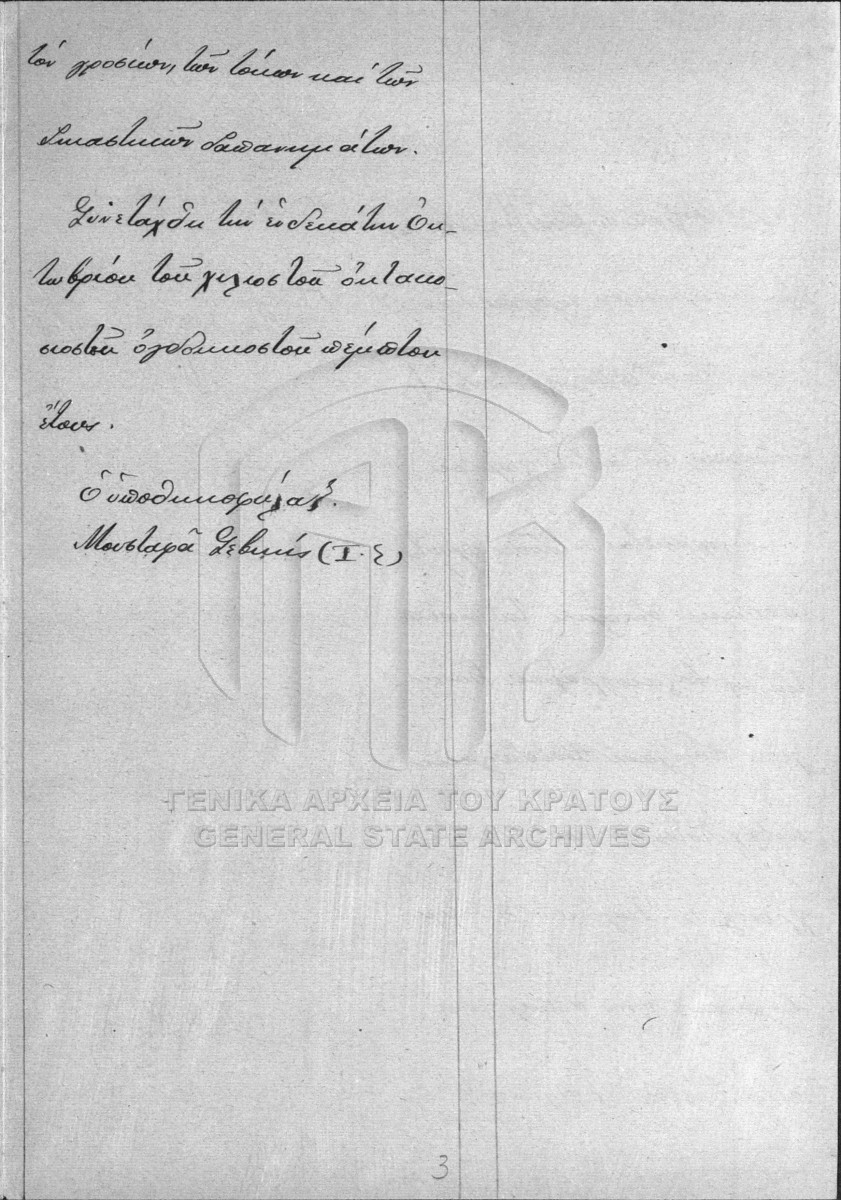 τον γροσίων, των τόκων και των
δικαστικών δαπανημάτων.
Συνετάχθη την ενδεκάτην Οκ-
τωβρίου του χιλιοστού οκτακο-
σιοστού ογδοηκοστού πέμπτου
έτους.
Ο υποθηκοφύλαξ.
Μουσταφά Σεβκής (Τ.Σ)
ΓΕΝΙΚΑ ΑΡΧΕΙΑ ΤΟΥ ΚΡΑΤΟΥΣ
GENERAL STATE ARCHIVES
3